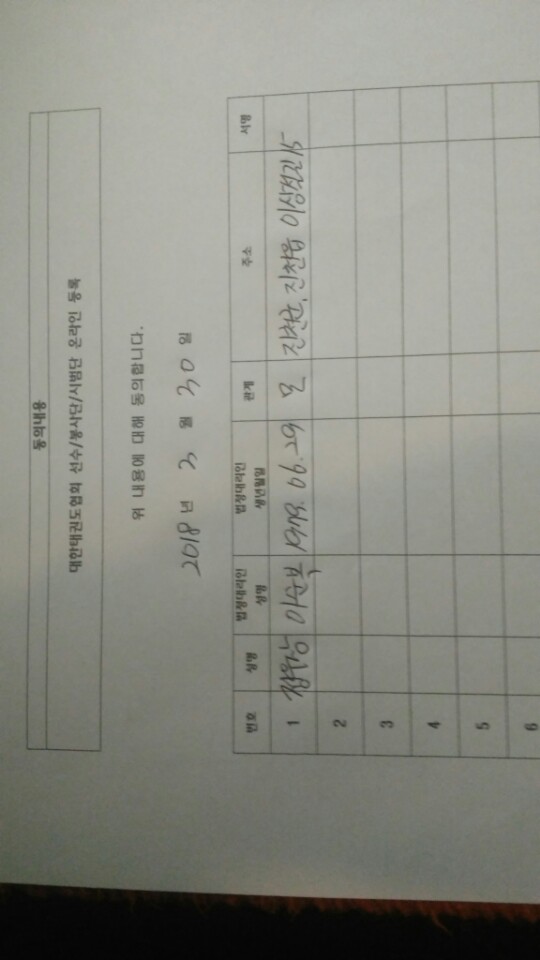 동의내용
대한태권도협회 선수/봉사단/시범단 온라인 등록
위 내용에 대해 동의합니다.
2018 년 3 월 30 일
번호 성명 법정대리인 성명 법정대리인 생년월일 관계 주소 서명
1 이순복 06.29 모 진천군 진천읍
2
3
4
5
6